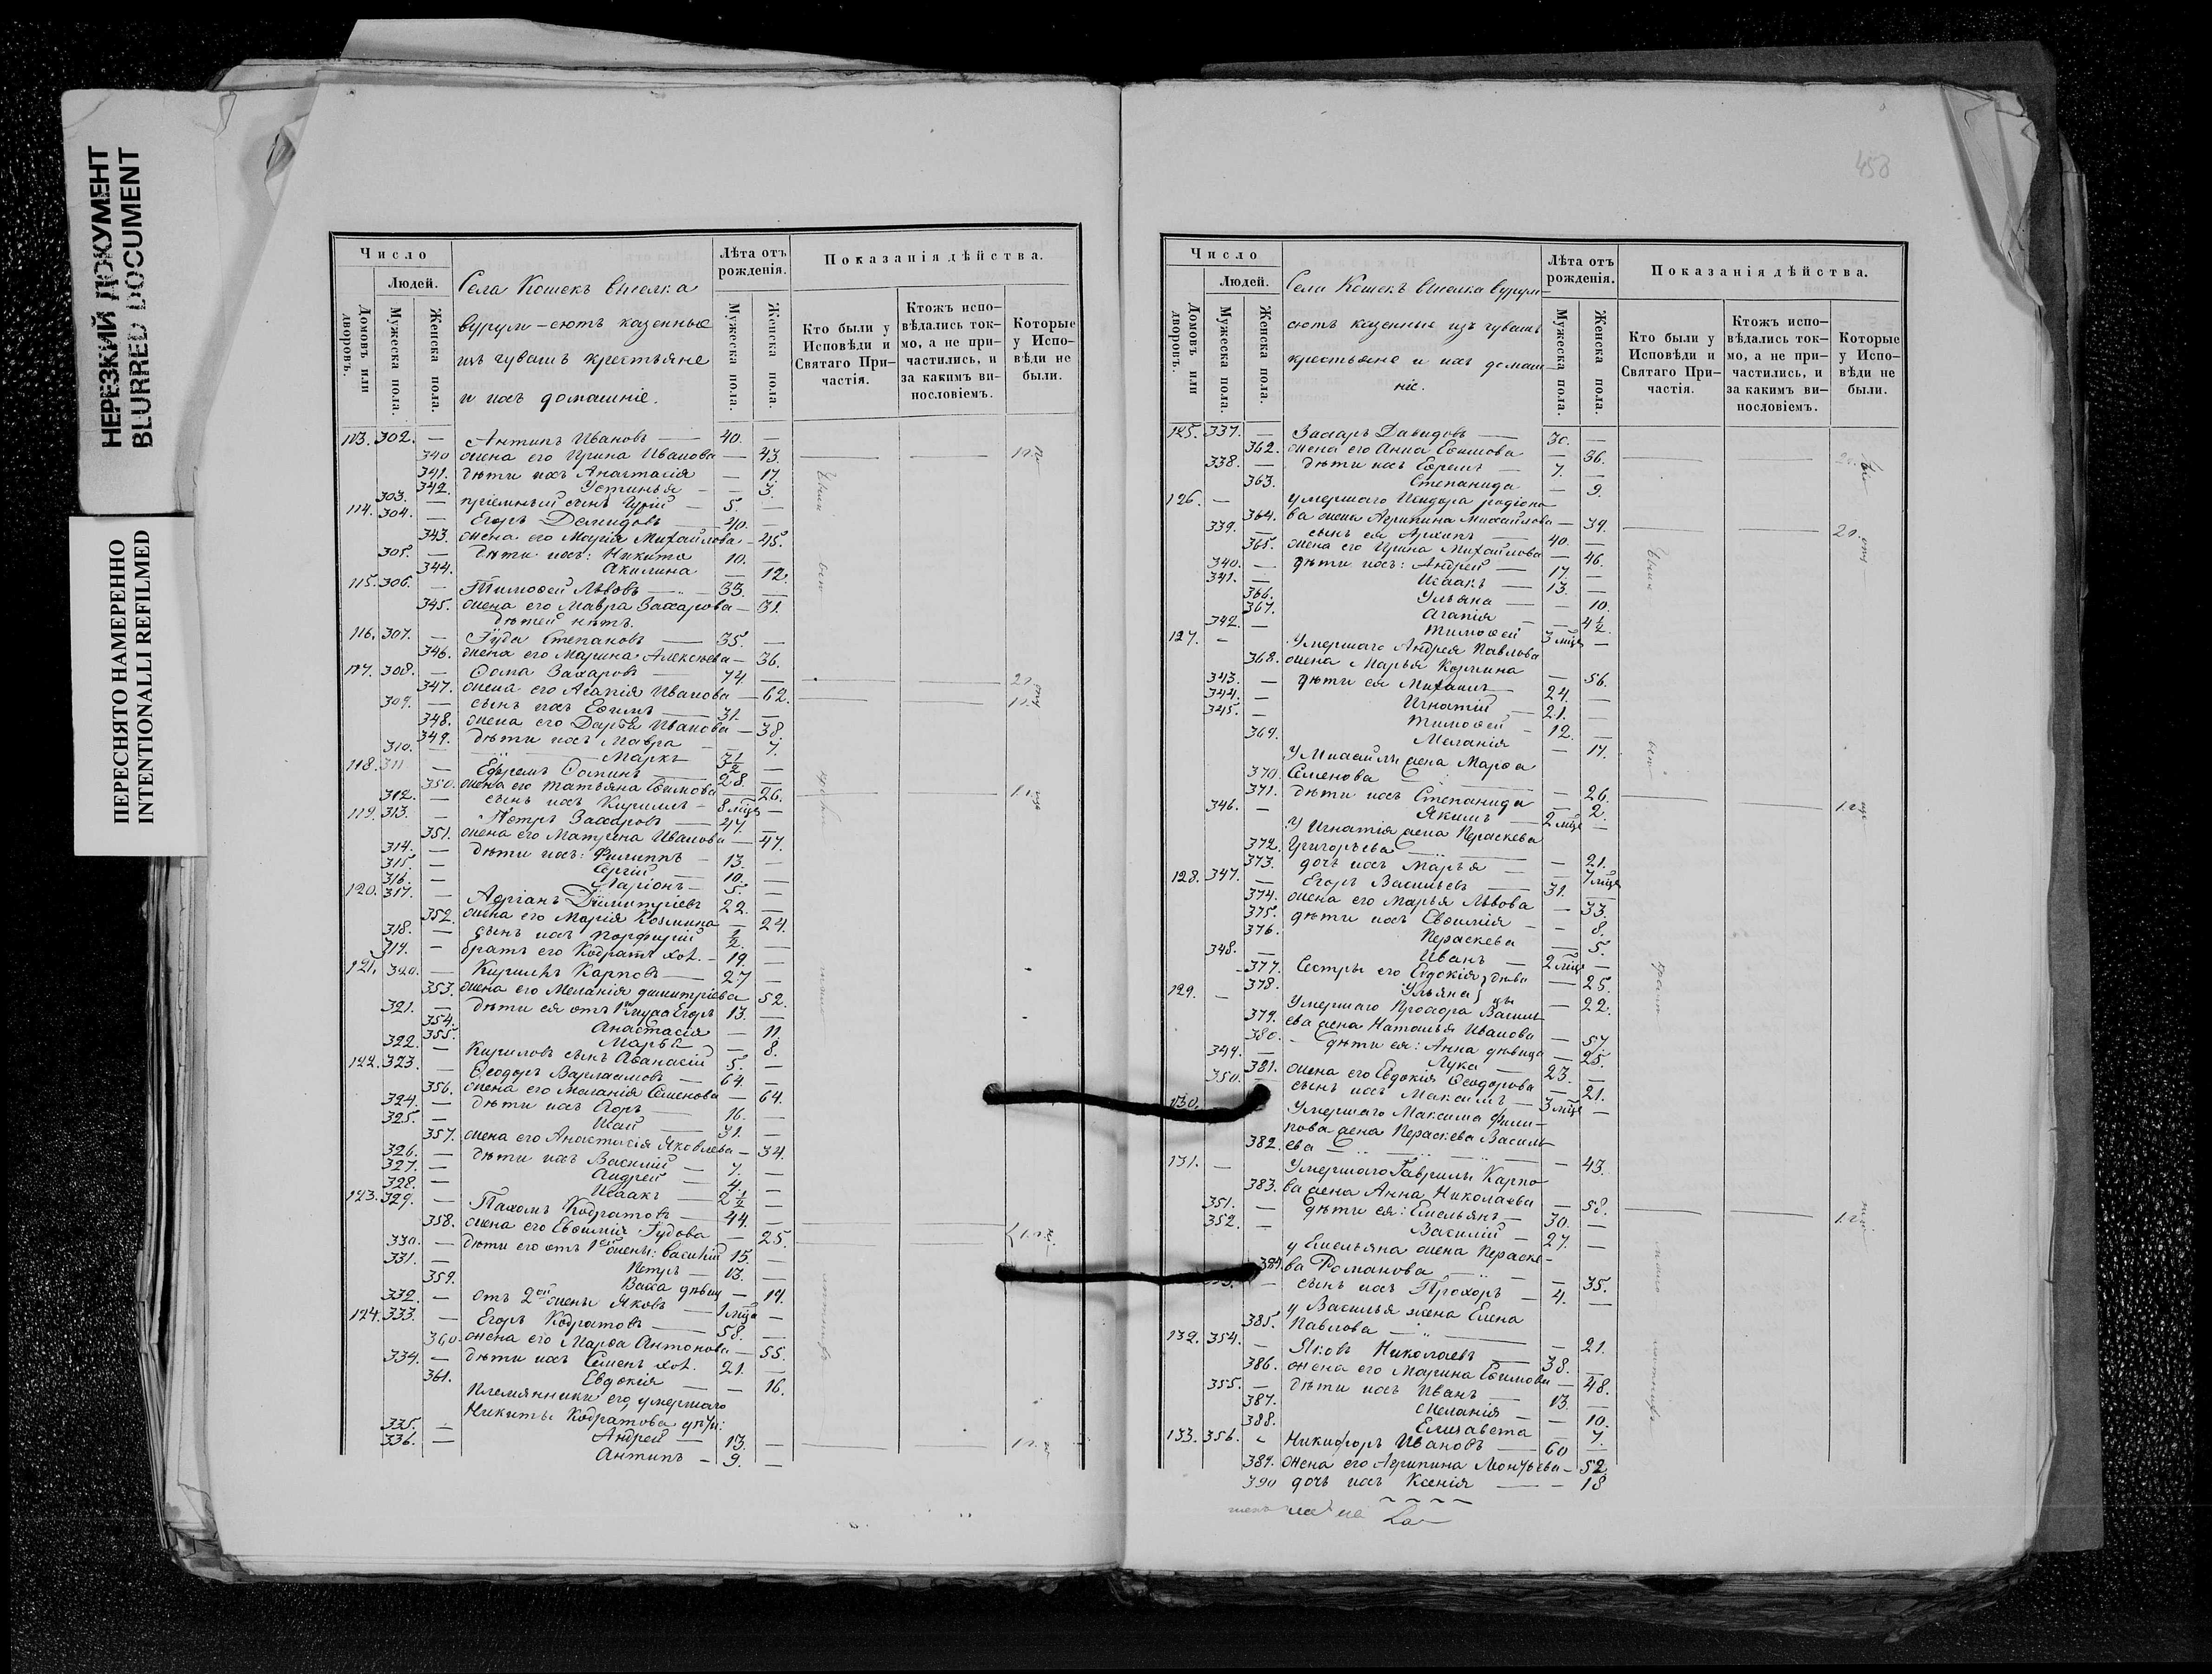 НЕРЕЗКИЙ ДОКУМЕНТ
BLURRED DOCUMENT
ПЕРЕСНЯТО НАМЕРЕННО
INTENTIONALLI REFILMED
Число
Людей.
Домовъ или дворовъ.
Мужеска пола.
Женска пола.
Села Кошекъ выселка
вурум-сютъ казенные
изъ чувашъ крестьяне
и ихъ домашніе.
Лѣта отъ рожденія.
Мужеска пола.
Женска пола.
Показанія дѣйства.
Кто были у Исповѣди и Святаго Причастія.
Ктожъ исповѣдались токмо, а не причастились, и за какимъ винословіемъ.
Которые у Исповѣди не были.
113. 302. — Антипъ Ивановъ — 40. —
340 жена его Ирина Иванова — 43.
341. дѣти ихъ Анастасія — 17.
342. Устинья — 3.
303. — пріемный сынъ Гурій — 5. —
114. 304. — Егоръ Демидовъ — 40. —
343. жена его Марія Михайлова — 45.
305. — дѣти ихъ: Никита 10. —
344. Акилина — 12.
115. 306. — Тимоѳей Львовъ — 33. —
345. жена его Мавра Захарова — 31.
дѣтей нѣтъ.
116. 307. — Іуда Степановъ — 35. —
346. жена его Марина Алексѣева — 36.
117. 308. — Ѳома Захаровъ — 74 —
347. жена его Агапія Иванова — 62.
309. — сынъ ихъ Ефимъ — 31. —
348. жена его Дарья Иванова — 38.
349. дѣти ихъ Мавра — 7.
310. — Маркъ 3½ —
118. 311 — Ефремъ Ѳоминъ — 28. —
350. жена его Татьяна Ефимова — 26.
312. — сынъ ихъ Кириллъ — 8 мцъ —
119. 313. — Петръ Захаровъ — 47. —
351. жена его Матрена Иванова — 47.
314. — дѣти ихъ: Филиппъ — 13. —
315. — Сергій — 10. —
316. — Ларіонъ — 5. —
120. 317. — Адріанъ Димитріевъ 22. —
352. жена его Марія Козмина — 24.
318. — сынъ ихъ Порфирій ½. —
319. — братъ его Кодратъ хол. — 19. —
121. 320. — Кириллъ Карповъ — 27 —
353. жена его Меланія Димитріева 52.
321. — дѣти ея отъ 1го мужа Егоръ 13. —
354. Анастасія — 11.
355. Марья — 8.
322. — Кириловъ сынъ Аѳанасій 5. —
122. 323. — Ѳеодоръ Варлаамовъ — 64. —
356. жена его Меланія Семенова — 64.
324. — дѣти ихъ Егоръ — 16. —
325. — Исай — 31. —
357. жена его Анастасія Яковлева — 34.
326. — дѣти ихъ Василій — 7. —
327. — Андрей — 4. —
328. — Исаакъ — 2½ —
123. 329. — Пахомъ Кодратовъ — 44. —
358. жена его Евѳимія Іудова — 25.
330. — дѣти его отъ 1ой жены: Василій 15. —
331. — Петръ — 13. —
359. Васса дѣвиц — 19.
332. — отъ 2ой жены Яковъ — 1 мцъ —
124. 333. — Егоръ Кодратовъ — 58. —
360 жена его Марѳа Антонова — 55.
334. — дѣти ихъ Семенъ хол. 21. —
361. Евдокія — 16.
Племянники его, умершаго
Никиты Кодратова дѣти:
335. — Андрей — 13. —
336. — Антипъ — 9. —
458
Число
Людей.
Домовъ или дворовъ.
Мужеска пола.
Женска пола.
Села Кошекъ выселка вурум-
сютъ казенные изъ чувашъ
крестьяне и ихъ домаш-
ніе.
Лѣта отъ рожденія.
Мужеска пола.
Женска пола.
Показанія дѣйства.
Кто были у Исповѣди и Святаго Причастія.
Ктожъ исповѣдались токмо, а не причастились, и за какимъ винословіемъ.
Которые у Исповѣди не были.
125. 337. — Захаръ Давидовъ — 30. —
362. жена его Анна Ефимова — 36.
338. — дѣти ихъ Ефремъ — 7. —
363. Степанида — 9.
126. — умершаго Исидора родіоно-
364. ва жена Агрипина Михайлова — 39.
339. — сынъ ея Архипъ — 40. —
365. жена его Ирина Михайлова — 46.
340. — дѣти ихъ: Андрей — 17. —
341. — Исаакъ — 13. —
366. Ульяна — 10.
367. Агапія — 4½.
342. — Тимоѳей 3 мцъ —
127. — Умершаго Андрея Павлова
368. жена Марья Козмина — 56.
343. — дѣти ея Михаилъ — 24. —
344. — Игнатій — 21. —
345. — Тимоѳей — 12. —
369. Меланія — 17.
У Михайлы жена Марѳа
370. Семенова — 26.
371. дѣти ихъ Степанида — 2.
346. — Якимъ — 2 мцъ —
У Игнатія жена Параскева
372. Григорьева — 21.
373. дочь ихъ Марья — 7 мцъ
128. 347. — Егоръ Васильевъ — 31. —
374. жена его Марья Львова — 33.
375. дѣти ихъ Евѳимія — 8.
376. Параскева — 5.
348. — Иванъ — 2 мцъ —
377. Сестры его Евдокія } дѣви — 25.
378. Ульяна } цы — 22.
129. — Умершаго Прохора Василь-
379. ева жена Наталья Иванова — 57.
380. — дѣти ея: Анна дѣвица — 25.
349. — Лука — 23. —
381. жена его Евдокія Ѳеодорова — 21.
350. — сынъ ихъ Максимъ — 3 мцъ —
130. Умершаго Максима Фили-
пова жена Параскева Василь-
382. ева — 43.
131. — Умершаго Гаврилы Карпо-
383. ва жена Анна Николаева — 58.
351. — дѣти ея: Емельянъ — 30. —
352. — Василій — 27. —
у Емельяна жена Параске-
384. ва Романова — 35.
— сынъ ихъ Прохоръ — 4. —
у Василья жена Елена
385. Павлова — 21.
132. 354. — Яковъ Николаевъ — 38. —
386. жена его Марина Ефимова — 48.
355. — дѣти ихъ Иванъ — 13. —
387. Меланія — 10.
388. Елизавета — 7.
133. 356. — Никифоръ Ивановъ — 60 —
389. жена его Агрипина Леонтьева — 52
390 дочь ихъ Ксенія — 18